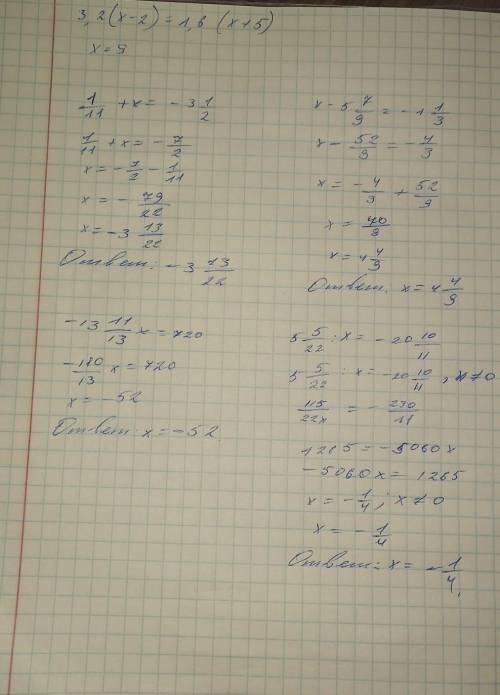 3,2(x-2)=1,6 (x+5)
x=9
1/11 +x= -3 1/2
1/11 +x= -7/2
x= -7/2 - 1/11
x= - 79/22
x= -3 13/22
Ответ: -3 13/22
x-5 7/9 = -1 1/3
x- 52/9 = -4/3
x= -4/3 + 52/9
x= 40/9
x=4 4/9
Ответ. x=4 4/9
-13 11/13 x=720
-180/13 x=720
x= -52
Ответ: x= -52
5 5/22 : x= -20 10/11
5 5/22 : x= -20 10/11, x≠0
115/22x = - 230/11
1265= -5060x
-5060x= 1265
x= -1/4; x≠0
x= -1/4
Ответ: x= -1/4.